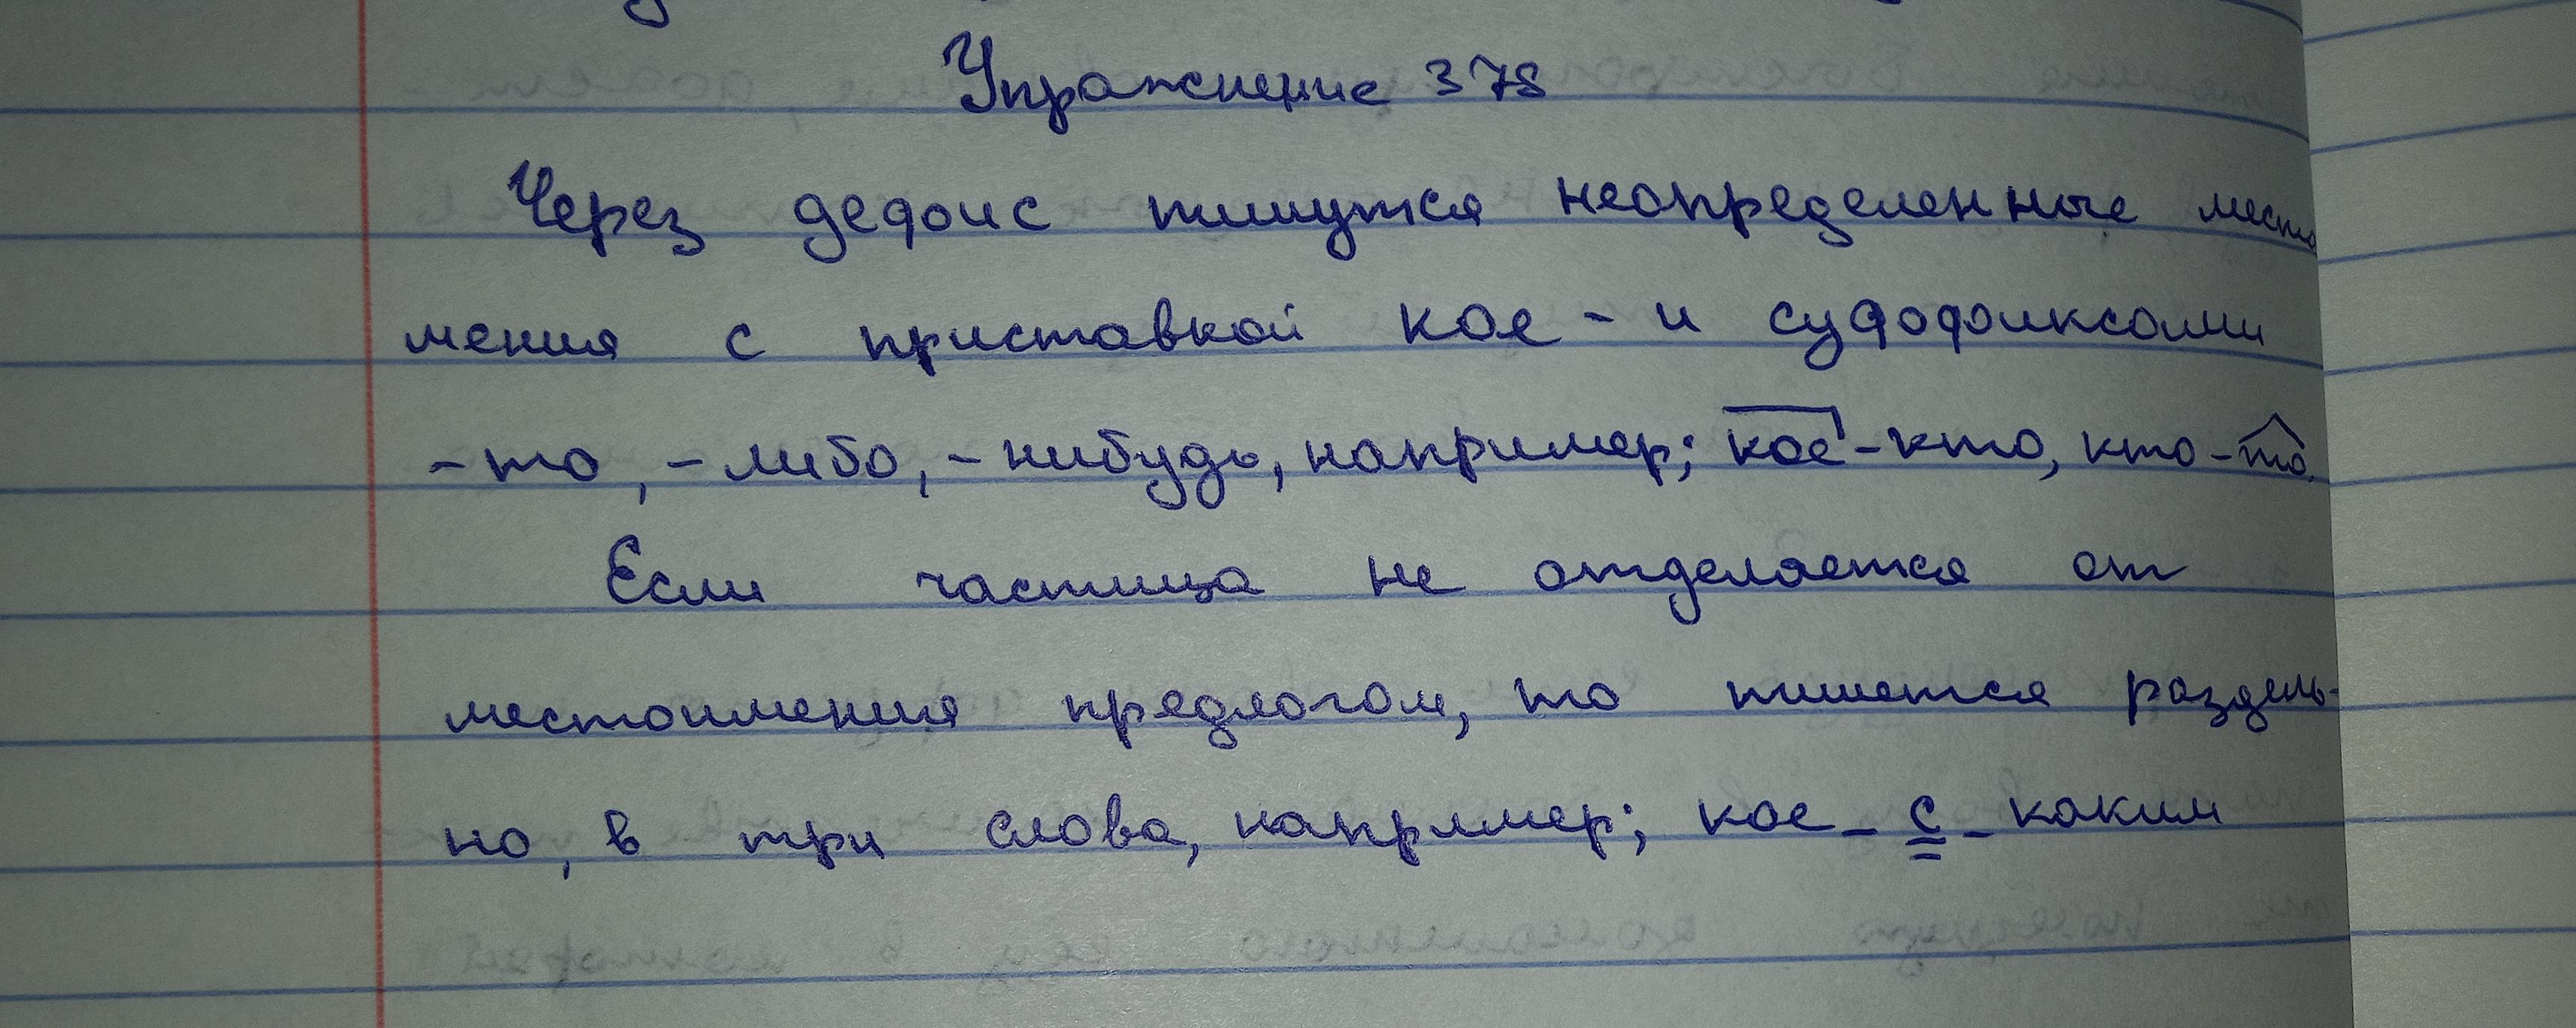 Упражнение 378
Через дефис пишутся неопределенные место
мения с приставкой кое - и суффиксами
- то, - либо, - нибудь, например; кое - кто, кто - то,
Если частица не отделяется от
местоимения предлогом, то пишется раздель-
но, в три слова, например; кое - с - каким